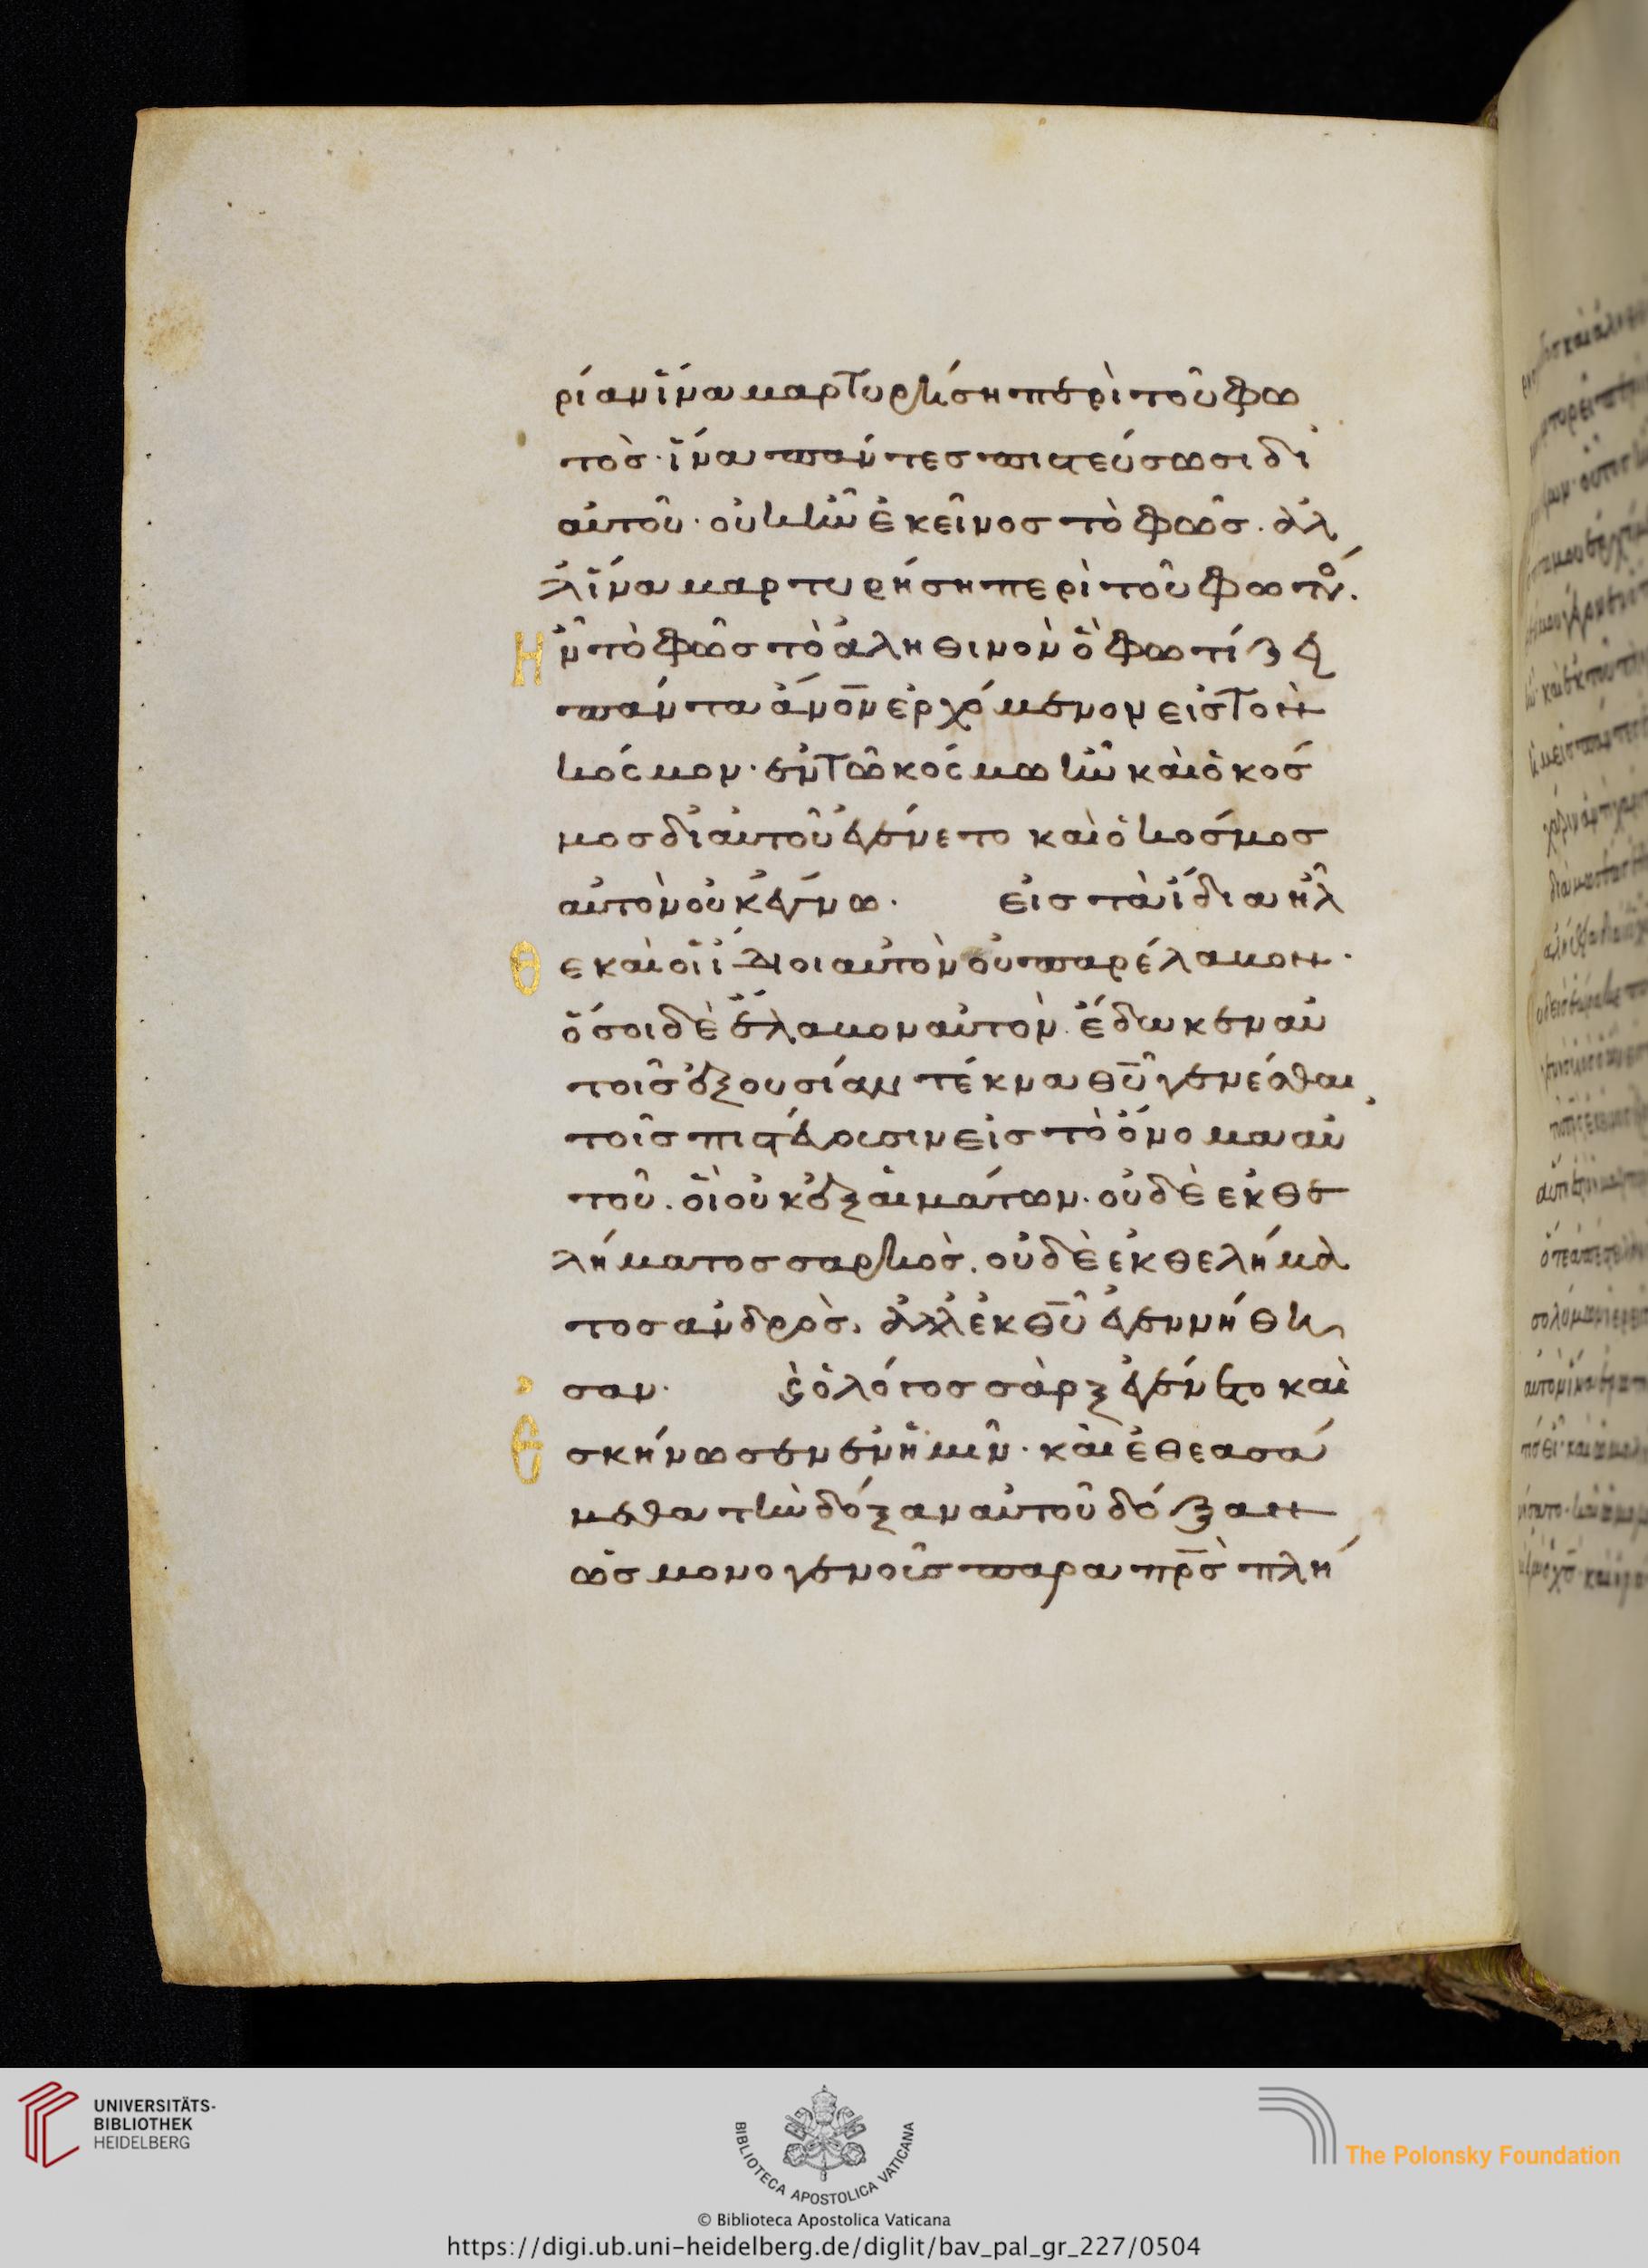 ρίαν ἵνα μαρτυρήση περὶ τοῦ φω
τὸσ· ἵνα πάντεσ πιστεύσωσι δι
αὐτοῦ· οὐκ ἦν ἐκεῖνοσ τὸ φῶσ. ἀλ
λ ἵνα μαρτυρήση περὶ τοῦ φωτό.
Ἦν τὸ φῶσ τὸ ἀληθινὸν ὃ φωτίζει
πάντα ἄνο̅ν ἐρχόμενον εἰσ τὸν
κόσμον· ἐν τῶ κόσμω ἦν καὶ ὁ κόσ
μοσ δι αὐτοῦ ἐγένετο καὶ ὁ κόσμοσ
αὐτὸν οὐκ ἔγνω· εἰσ τὰ ἴδια ἦλ
Θε καὶ οἱ ἴδιοι αὐτὸν οὐ παρέλαβον·
ὅσοι δὲ ἔλαβον αὐτὸν. ἔδωκεν αὐ
τοῖσ ἐξουσίαν τέκνα θ̅υ̅ γενέσθαι,
τοῖσ πιστεύουσιν εἰσ τὸ ὄνομα αὐ
τοῦ. οἳ οὐκ ἐξ αἱμάτων. οὐδὲ ἐκ θε
λήματοσ σαρκὸσ. οὐδὲ ἐκ θελήμα
τοσ ἀνδρὸσ. ἀλλ ἐκ θ̅υ̅ ἐγεννήθη
σαν· Ϗ ὁ λόγοσ σὰρξ ἐγένετο καὶ
Ἐσκήνωσεν ἐν ἡμῖν· καὶ ἐθεασά
μεθα τὴν δόξαν αὐτοῦ δόξαν
ὡσ μονογενοῦσ παρα π̅ρ̅σ̅ πλή
UNIVERSITÄTS-
BIBLIOTHEK
HEIDELBERG
BIBLIOTECA APOSTOLICA VATICANA
The Polonsky Foundation
© Biblioteca Apostolica Vaticana
https://digi.ub.uni-heidelberg.de/diglit/bav_pal_gr_227/0504